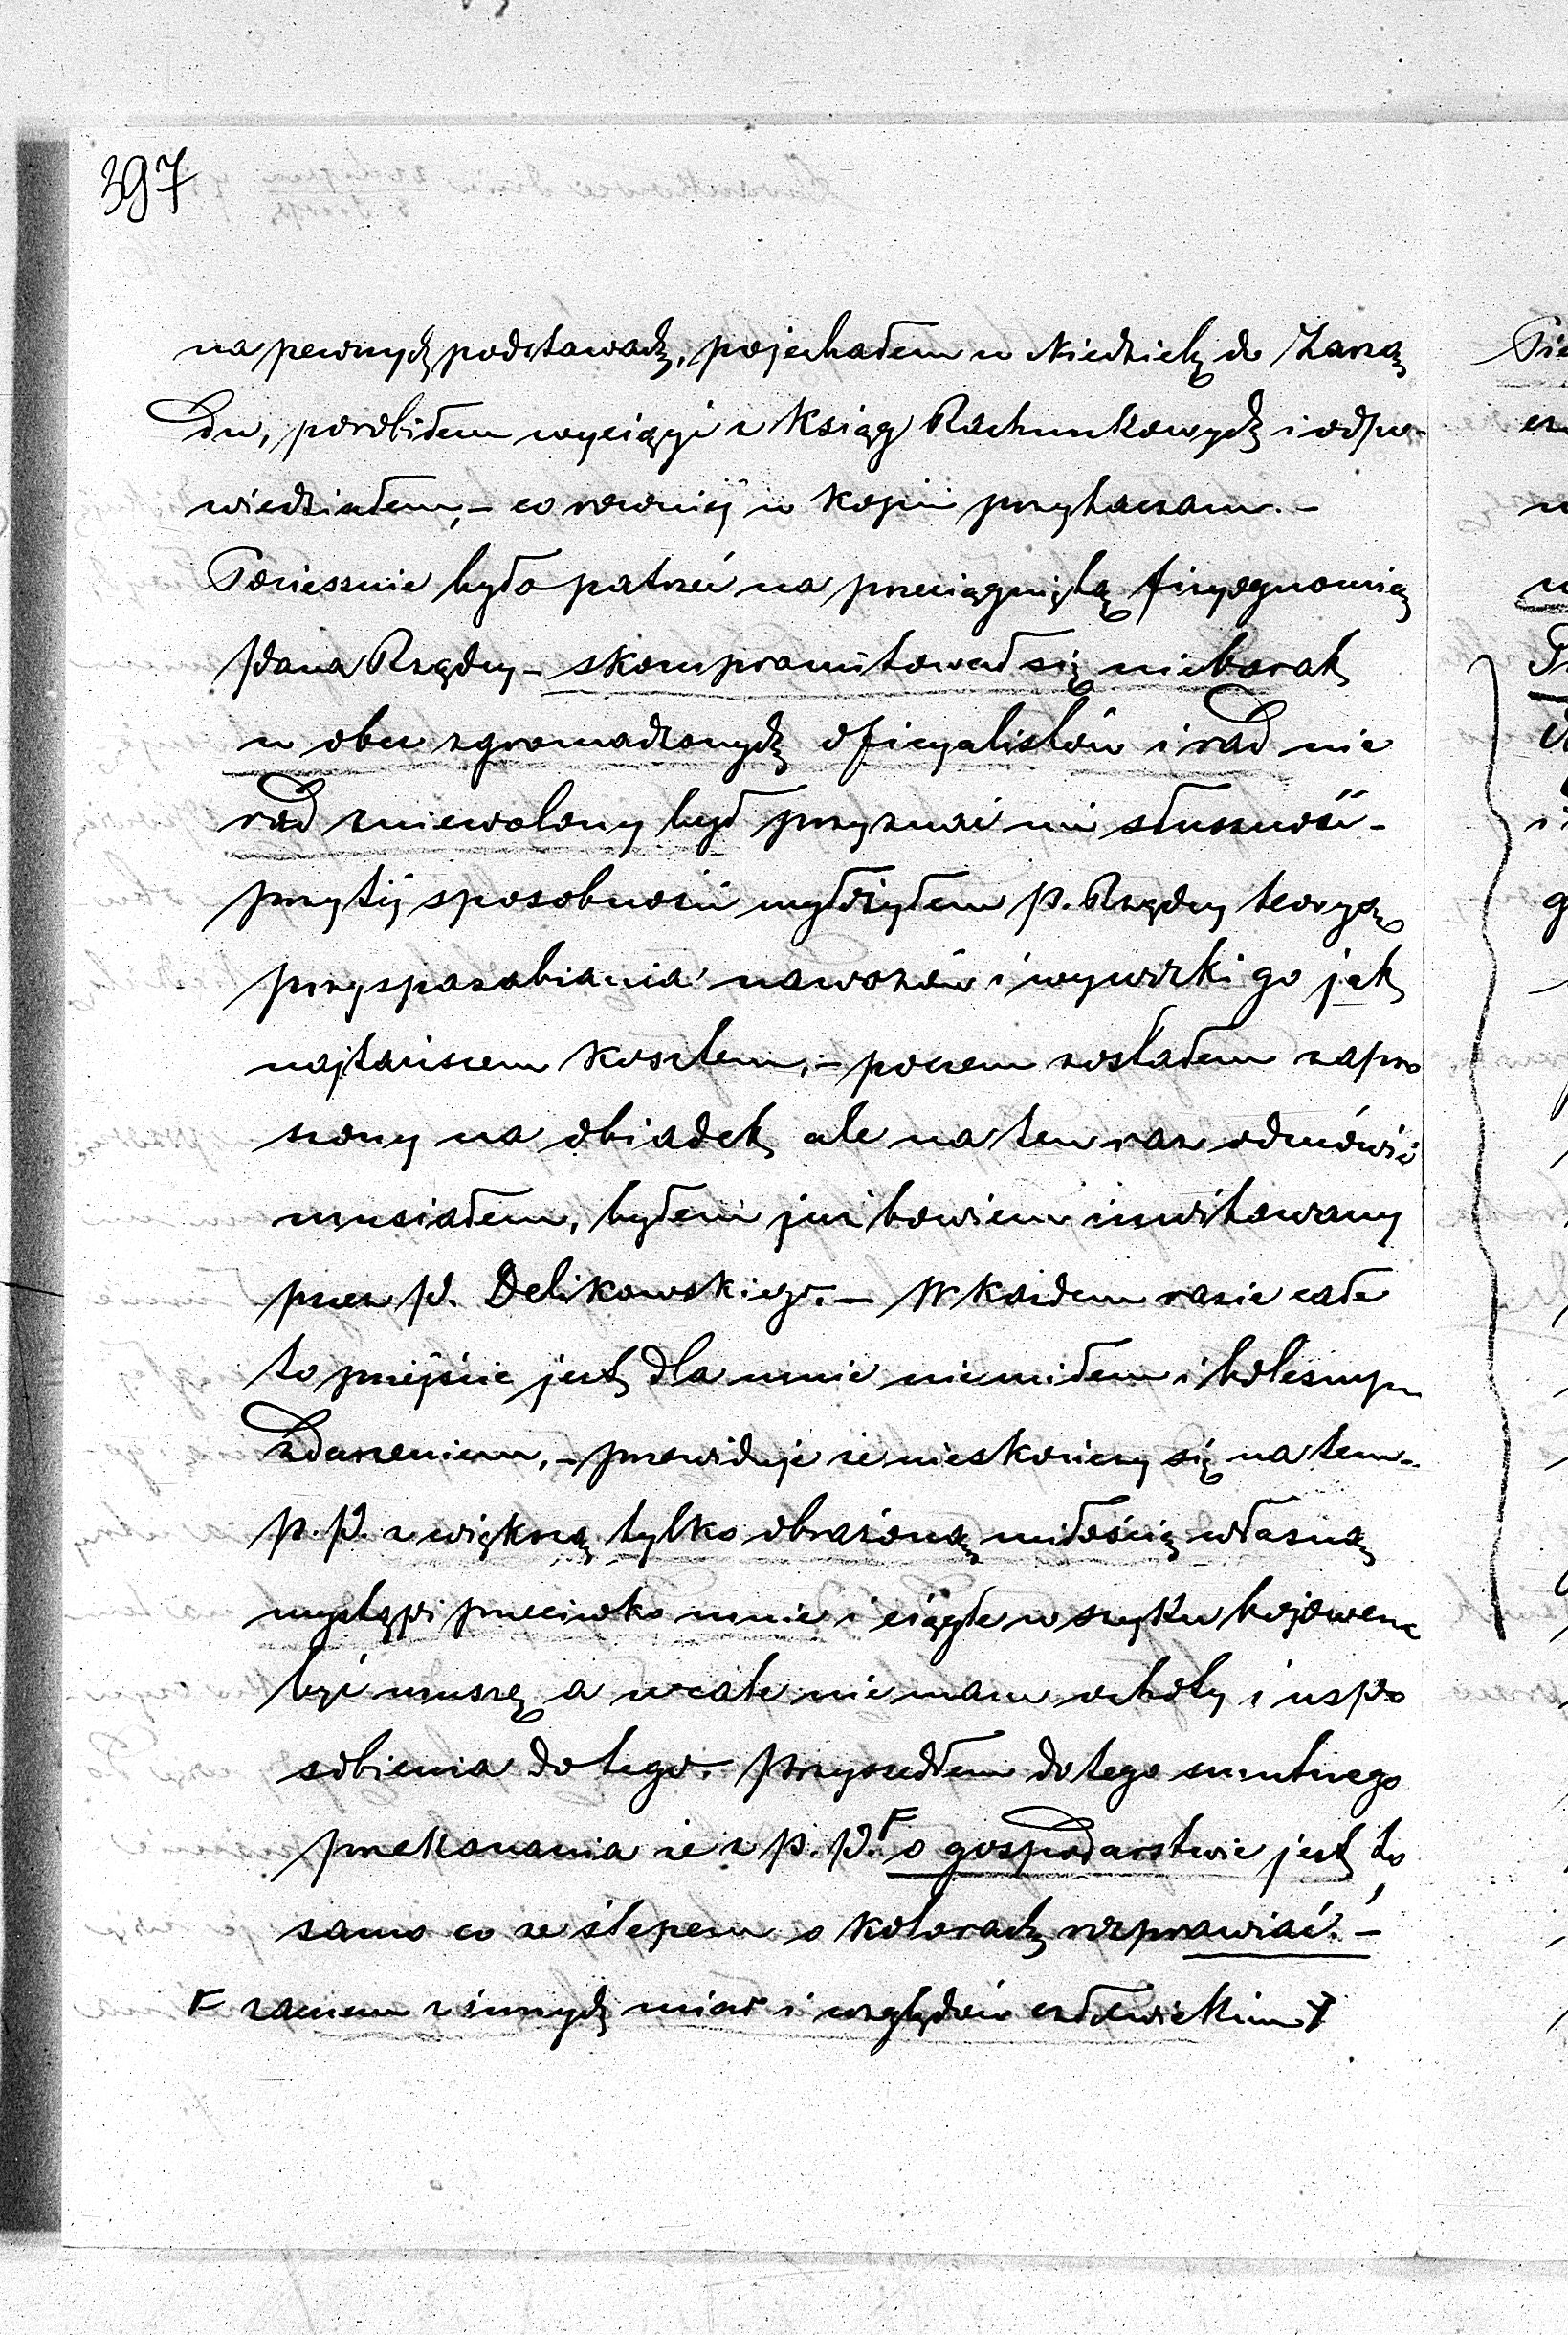 397
na pewnych podstawach, pojechałem w Niedzielę do Zarzą
du, porobiłem wyciągi z Ksiąg Rachunkowych i odpo-
wiedziałem, – co rownież w Kopii przytaczam. –
Pociesznie było patrzeć na przeciągniętą fizyognomią
Pana Rządcy – skompromitował się nieborak
w obec zgromadzonych oficyalistów i rad nie
rad zniewolony był przyznać mi słuszność –
przy téj sposobności wyłożyłem p. Rządcy teoryą
przysposabiania nawozów i wywózki go jak
najtańszem Kosztem, – poczem zostałem zapro
szony na obiadek ale na ten raz odmówić
musiałem, byłem już bowiem inwitowany
przez P. Delikowskiego. – W Każdem razie całe
to przejście jest dla mnie niemiłem i bolesnym
zdarzeniem, – przewiduję że nieskończy się na tem –
P. P. z większą tylko obrażoną miłością własną
wystąpi przeciwko mnie i ciągle w szyku bojowem
być muszę a wcale nie mam ochoty i uspo
sobienia do tego. Przyszedłem do tego smutnego
przekonania że z P. P. F o gospodarstwie jest to
samo co ze ślepem o Kolorach rozprawiać. –
F zacnem z innych miar i względów człowiekiem